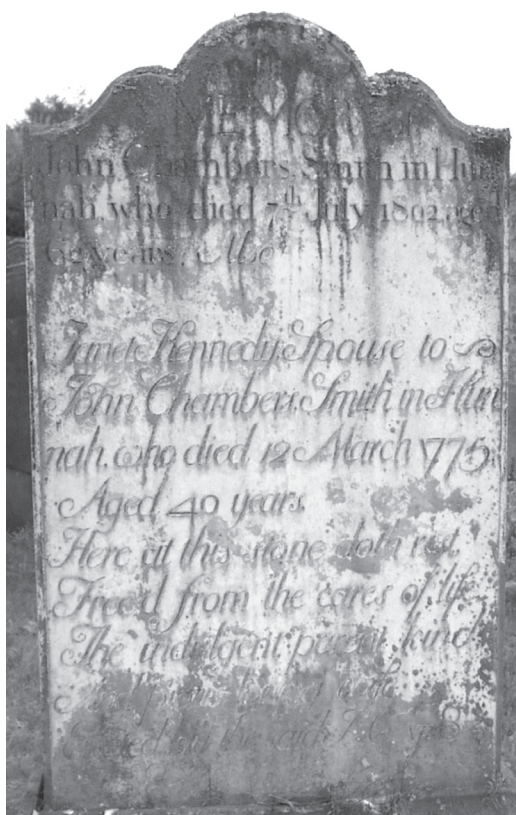 John Chambers Smith in Hun
nah, who died 7th July 1802, aged
62 years. Also
Janet Kennedy, Spouse to
John Chambers, Smith in Hun
nah, who died 12 March 1775,
Aged 40 years.
Here at this stone doth rest,
Free'd from the cares of life
The indulgent parent, kind